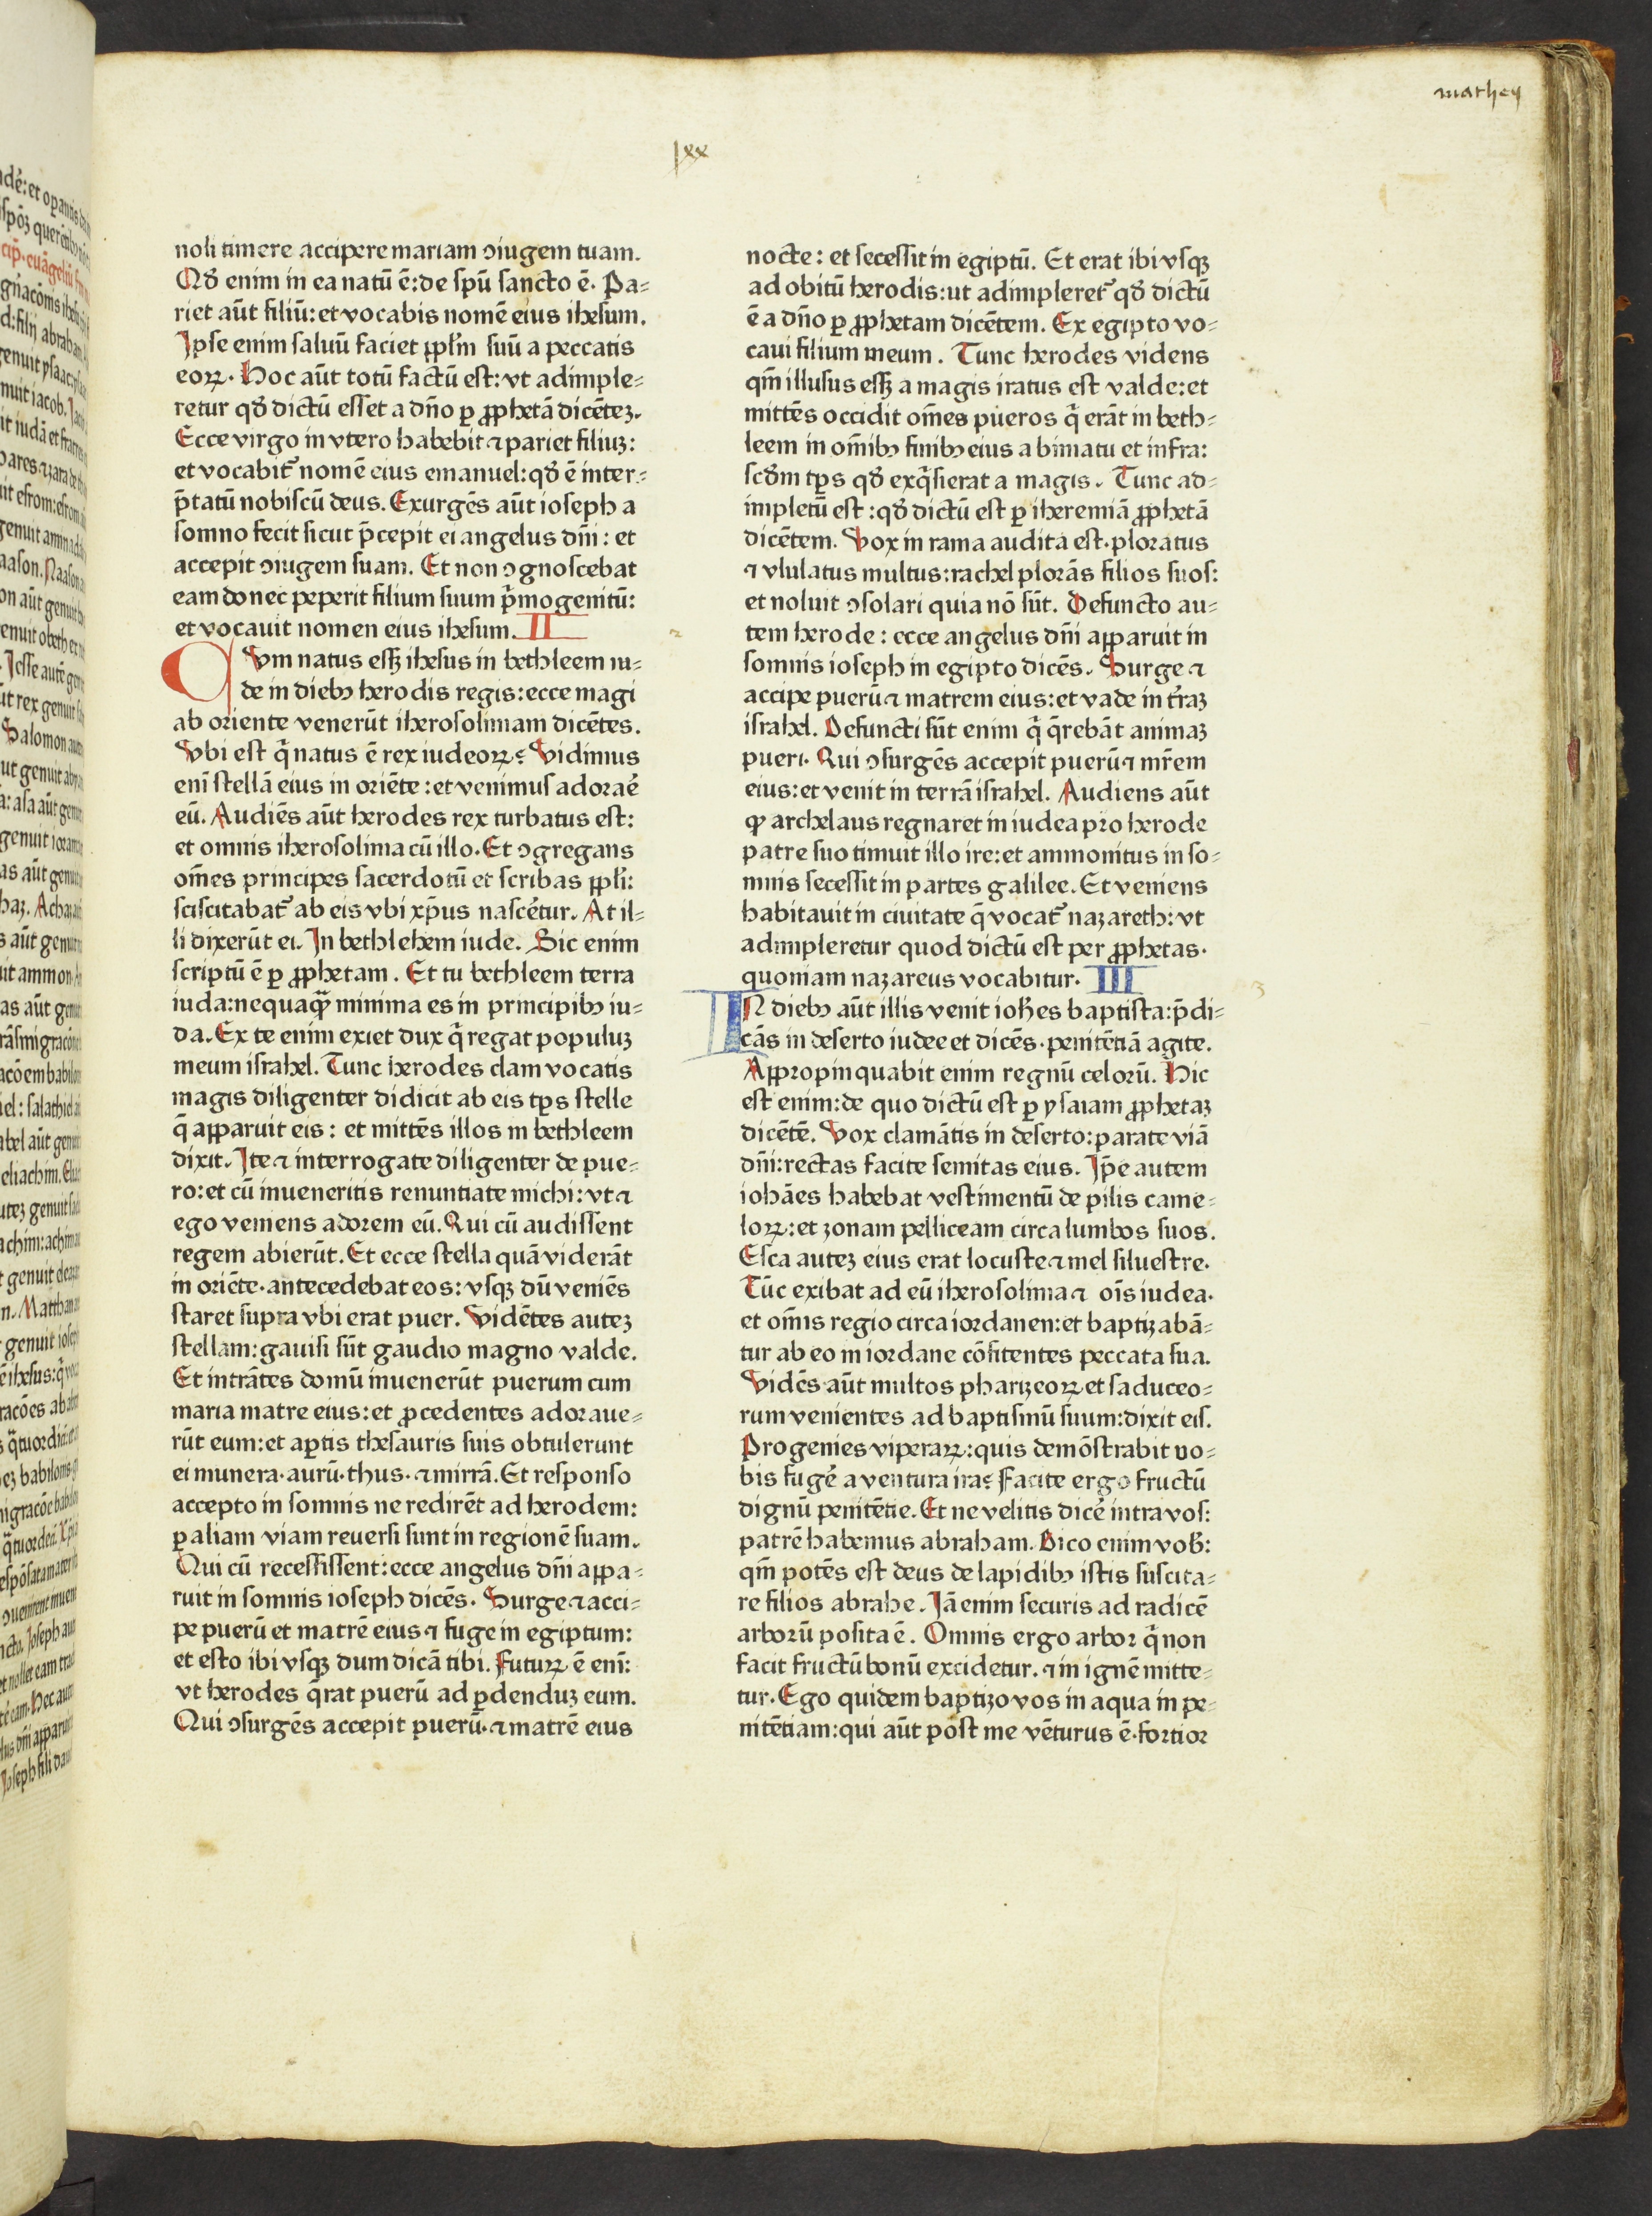 mathey
lxx
noli timere accipere mariam ↄiugem tuam.
Qđ enim in ea natū ē: de spū sancto ē. Pa⸗
riet aūt filiū: et vocabis nomē eius ihesum.
Ipse enim saluū faciet ppl̄m suū a peccatis
eoꝝ. Hoc aūt totū factū est: vt adimple⸗
retur qđ dictū esset a dn̄o ꝑ ꝓphetā dicētez.
Ecce virgo in vtero habebit ⁊ pariet filiuꝫ:
et vocabit᷑ nomē eius emanuel: qđ ē inter⸗
p̄tatū nobiscū deus. Exurgēs aūt ioseph a
somno fecit sicut p̄cepit ei angelus dn̄i: et
accepit ↄiugem suam. Et non ↄgnoscebat
eam donec peperit filium suum p̄mogenitū:
et vocauit nomen eius ihesum. II
CVm natus essꝫ ihesus in bethleem iu⸗
de in diebꝰ herodis regis: ecce magi
ab oriente venerūt iherosolimam dicētes.
Vbi est q̄ natus ē rex iudeoꝝ? Vidimus
enī stellā eius in oriēte: et venimus adoraē
eū. Audiēs aūt herodes rex turbatus est:
et omnis iherosolima cū illo. Et ↄgregans
om̄es principes sacerdotū et scribas ppl̄i:
sciscitabat᷑ ab eis vbi xp̄us nascēt​ur. At il⸗
li dixerūt ei. In bethlehem iude. Sic enim
scriptū ē ꝑ ꝓphetam. Et tu bethleem terra
iuda: nequaqꝫ̄ minima es in principibꝰ iu⸗
da. Ex te enim exiet dux q̄ regat populuꝫ
meum israhel. Tunc herodes clam vocatis
magis diligenter didicit ab eis tp̄s stelle
q̄ apparuit eis: et mittēs illos in bethleem
dixit. Ite ⁊ interrogate diligenter de pue⸗
ro: et cū inueneritis renuntiate michi: vt ⁊
ego veniens adorem eū. Qui cū audissent
regem abierūt. Et ecce stella quā viderāt
in oriēte. antecedebat eos: vsqꝫ dū veniēs
staret supra vbi erat puer. Vidētes autez
stellam: gauisi sūt gaudio magno valde.
Et intrātes domū inuenerūt puerum cum
maria matre eius: et ꝓcedentes adoraue⸗
rūt eum: et aꝑtis thesauris suis obtulerunt
ei munera. aurū. thus. ⁊ mirrā. Et responso
accepto in somnis ne redirēt ad herodem:
ꝑ aliam viam reuersi sunt in regionē suam.
Qui cū recessissent: ecce angelus dn̄i appa⸗
ruit in somnis ioseph dicēs. Surge ⁊ acci⸗
pe puerū et matrē eius ⁊ fuge in egiptum:
et esto ibi vsqꝫ dum dicā tibi. Futuꝝ ē enī:
vt herodes q̄rat puerū ad ꝑdenduꝫ eum.
Qui ↄsurgēs accepit puerū. ⁊ matrē eius
nocte: et secessit in egiptū. Et erat ibi vsqꝫ
ad obitū herodis: ut adimpleret᷑ qđ dictū
ē a dn̄o ꝑ ꝓphetam dicētem. Ex egipto vo⸗
caui filium meum. Tunc herodes videns
qm̄ illusus essꝫ a magis iratus est valde: et
mittēs occidit om̄es pueros q̄ erāt in beth⸗
leem in om̄ibꝰ finibꝰ eius a bimatu et infra:
scđm tp̄s qđ exq̄sierat a magis. Tunc ad⸗
impletū est: qđ dictū est ꝑ iheremiā ꝓphetā
dicētem. Vox in rama audita est. ploratus
⁊ vlulatus multus: rachel plorās filios suos:
et noluit ↄsolari quia nō sūt. Defuncto au⸗
tem herode: ecce angelus dn̄i apparuit in
somnis ioseph in egipto dicēs. Surge ⁊
accipe puerū ⁊ matrem eius: et vade in t̄raꝫ
israhel. Defuncti sūt enim q̄ q̄rebāt animaꝫ
pueri. Qui ↄsurgēs accepit puerū ⁊ mr̄em
eius: et venit in terrā israhel. Audiens aūt
ꝙ archelaus regnaret in iudea pro herode
patre suo timuit illo ire: et ammonitus in so⸗
mnis secessit in partes galilee. Et veniens
habitauit in ciuitate q̄ vocat᷑ nazareth: vt
adimpleretur quod dictū est per ꝓphetas.
quoniam nazareus vocabitur. III
IN diebꝰ aūt illis venit ioħes baptista: p̄di⸗
cās in deserto iudee et dicēs. penitētiā agite.
Appropinquabit enim regnū celorū. Hic
est enim: de quo dictū est ꝑ ysaiam ꝓphetaꝫ
dicētē. Vox clamātis in deserto: parate viā
dn̄i: rectas facite semitas eius. Ip̄e autem
iohāes habebat vestimentū de pilis came⸗
loꝝ: et zonam pelliceam circa lumbos suos.
Esca autez eius erat locuste ⁊ mel siluestre.
Tūc exibat ad eū iherosolima ⁊ ois̄ iudea.
et om̄is regio circa iordanen: et baptizabā⸗
tur ab eo in iordane cōfitentes peccata sua.
Vidēs aūt multos pharizeoꝝ et saduceo⸗
rum venientes ad baptismū suum: dixit eis.
Progenies viperaꝝ: quis demōstrabit uo⸗
bis fugē a ventura ira? Facite ergo fructū
dignū penitētie. Et ne velitis dicē intra vos:
patrē habemus abraham. Dico enim vob̄:
qm̄ potēs est deus de lapidibꝰ istis suscita⸗
re filios abrahe. Iā enim securis ad radicē
arborū posita ē. Omnis ergo arbor q̄ non
facit fructū bonū excidetur. ⁊ in ignē mitte⸗
tur. Ego quidem baptizo vos in aqua in pe⸗
nitētiam: qui aūt post me vēturus ē. fortior